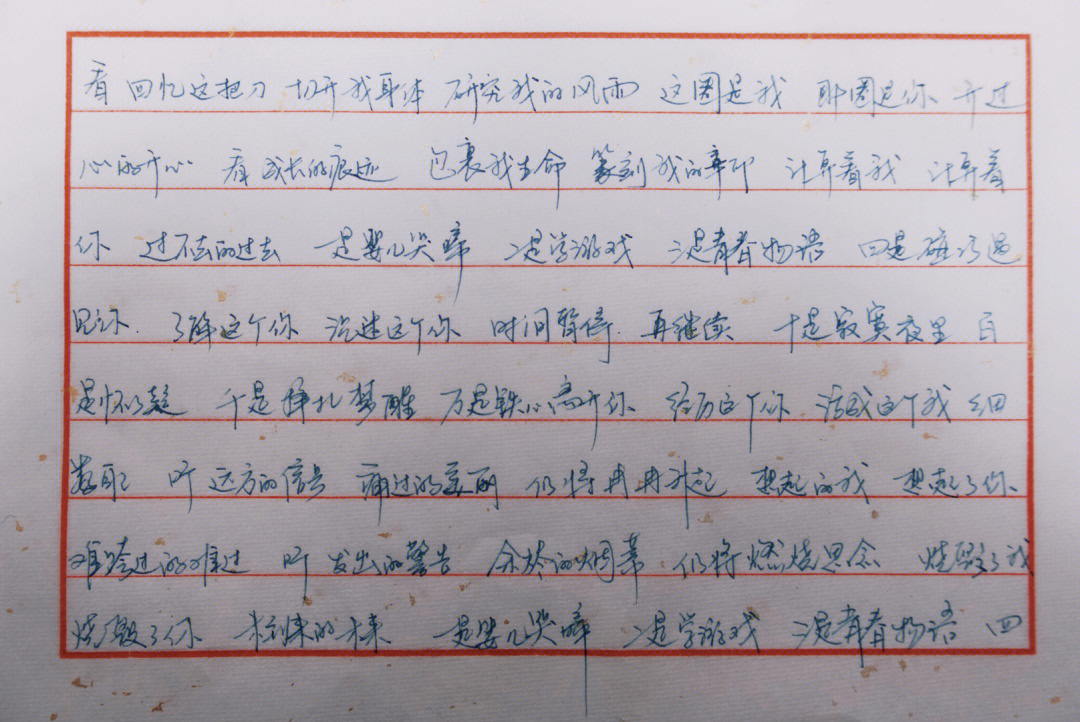 看 回忆这把刀 切开我身体 研究我的风雨 这圈是我 那圈是你 开过
心的开心 看 成长的痕迹 包裹我生命 篆刻我的年印 计算着我 计算着
你 过不去的过去 一是婴儿哭啼 二是学游戏 三是青春物语 四是碰巧遇
见你 了解这个你 沉迷这个你 时间暂停 再继续 十是寂寞夜里 百
是怀疑 千是挣扎梦醒 万是铁心离开你 经历这个你 活成这个我 细
数自己 听 远方的信号 痛过的美丽 仍将冉冉升起 想起了我 想起了你
难跨过的难过 听 发出的警告 余烬的烟幕 仍将燃烧思念 烧毁了我
烧毁了你 未到来的未来 一是婴儿哭啼 二是学游戏 三是青春物语 四